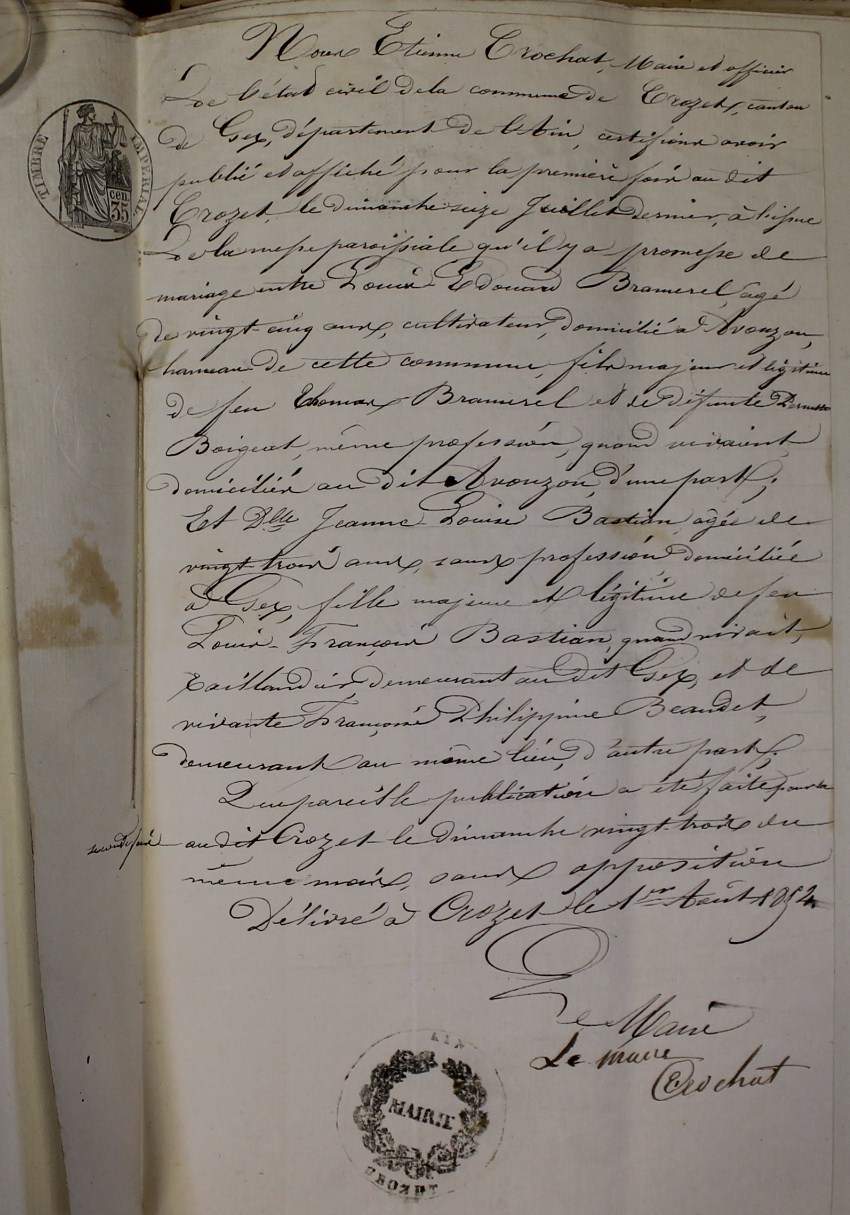 TIMBRE IMPERIAL
35 cen
Nous Etienne Crochat, Maire et officier
de l'état civil de la commune de Crozet, canton
de Gex, département de l'Ain, certifions avoir
publié et affiché pour la première fois au dit
Crozet, le dimanche seize Juillet dernier, à l'issue
de la messe paroissiale qu'il y a promesse de
mariage entre Louis-Edouard Bramerel, agé
de vingt-cinq ans, cultivateur, domicilié à Avouzon,
hameau de cette commune, fils majeur et légitime
de feu Thomas Bramerel et de défunte
Boigeat, même profession, quand vivaient,
domiciliés au dit Avouzon, d'une part;
Et Dlle Jeanne-Louise Bastian, agée de
vingt trois ans, sans profession, domiciliée
à Gex, fille majeure et légitime de feu
Louis-François Bastian, quand vivait,
taillandier, demeurant au dit Gex, et de
vivante Françoise Philippine Beaudet,
demeurant au même lieu, d'autre part.
Que pareille publication a été faite pour la
seconde fois au dit Crozet le dimanche vingt-trois du
même mois, sans opposition
Délivré à Crozet le 1er Août
Le Maire
Le maire
Crochat
AIN
MAIRIE
CROZET